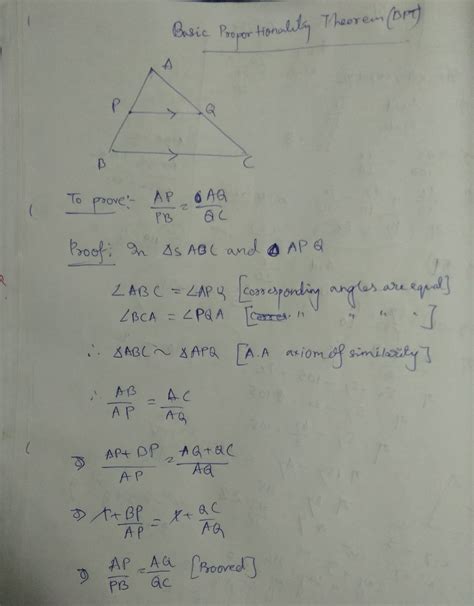 Basic Proportionality Theorem (BPT)
A
P Q
B C
To prove:- AP/PB = AQ/QC
Proof: In Δs ABC and APQ
∠ABC = ∠APQ [corresponding angles are equal]
∠BCA = ∠PQA [corres. " " " " ]
∴ ΔABC ~ ΔAPQ [A.A axiom of similarity]
∴ AB/AP = AC/AQ
⇒ AP+BP/AP = AQ+QC/AQ
⇒ 1+BP/AP = 1+QC/AQ
⇒ AP/PB = AQ/QC [Prooved]